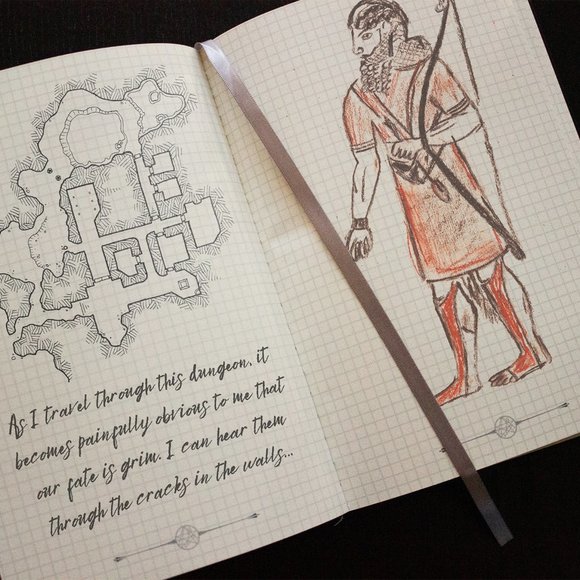 As I travel through this dungeon, it
becomes painfully obvious to me that
our fate is grim. I can hear them
through the cracks in the walls...